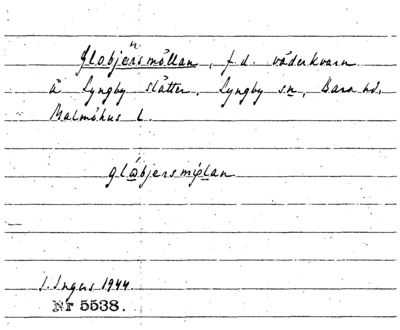 Globjersmöllan, f.d. väderkvarn
å Lyngby slätter, Lyngby sn, Bara hd,
Malmöhus l.
I. Ingers 1944.
Nr 5538.